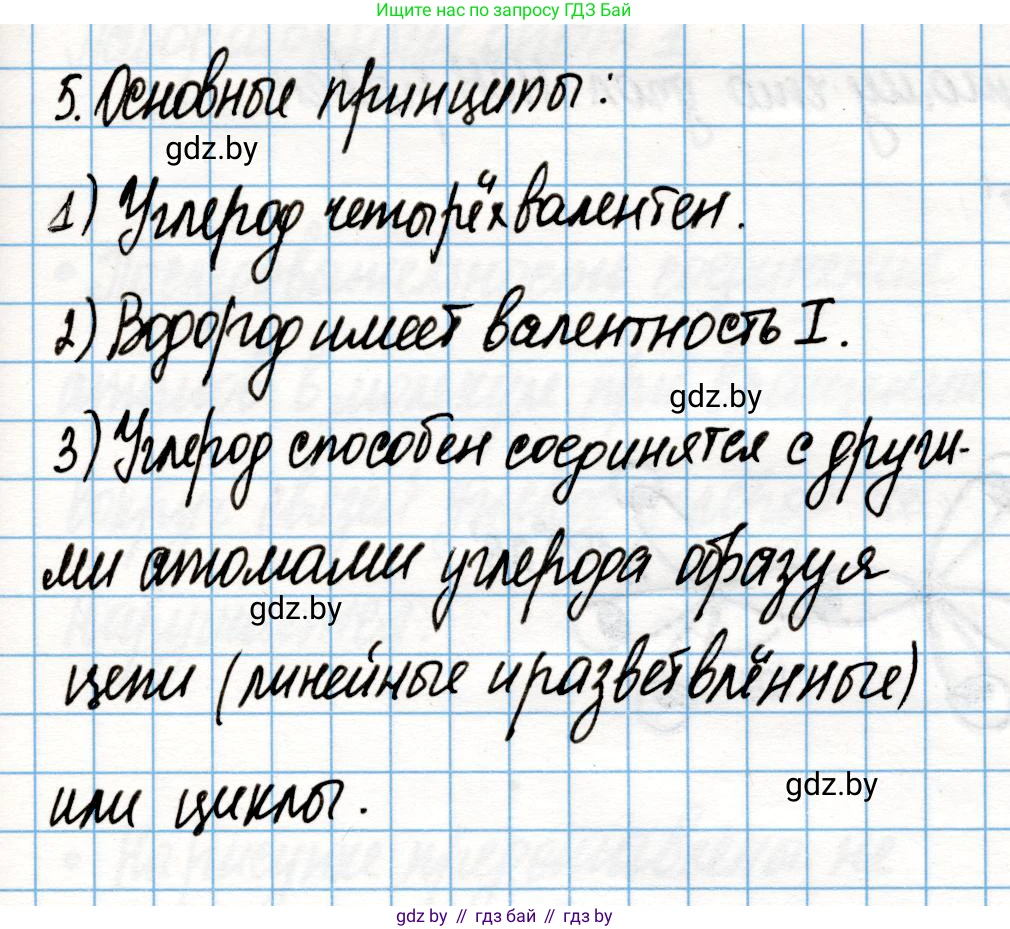 Ищите нас по запросу ГДЗ Бай
5. Основные принципы:
gdz.by
1) Углерод четырёхвалентен.
2) Водород имеет валентность I.
gdz.by
3) Углерод способен соединятся с други-
ми атомами углерода образуя
gdz.by
цепи (линейные и разветвлённые)
gdz.by
или циклы.
gdz.by // гдз бай // гдз by